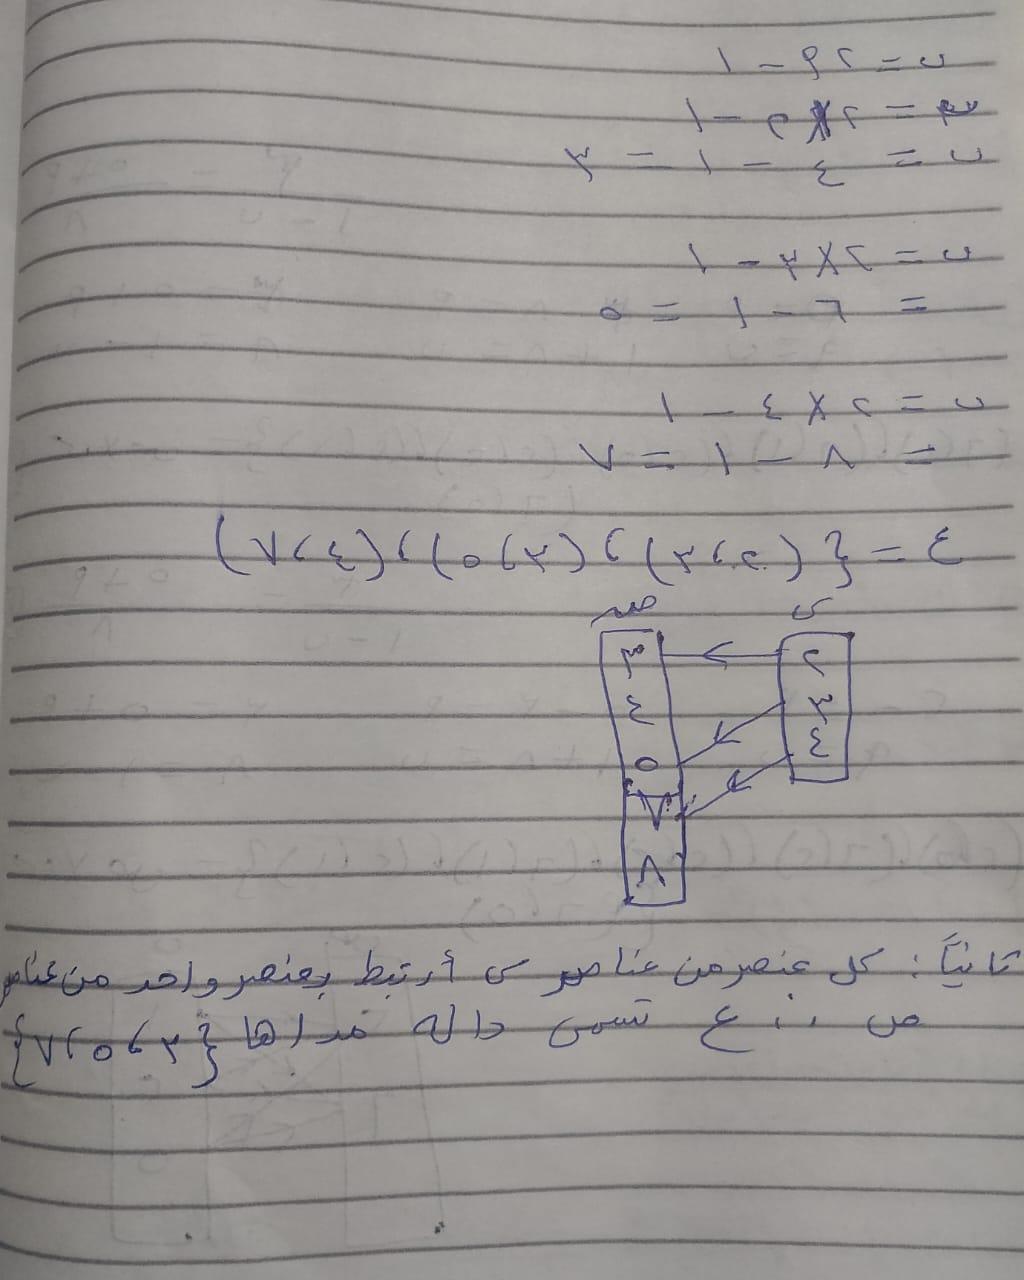 ب = ٢ م - ١
ب = ٢ × ٢ - ١
ب = ٤ - ١ = ٣
ب = ٢ × ٣ - ١
= ٦ - ١ = ٥
ب = ٢ × ٤ - ١
= ٨ - ١ = ٧
ع = { (٢، ٣)، (٣، ٥)، (٤، ٧)
س صـ
٢ ٣
٣ ٤
٤ ٥
٧
٨
ثانياً: كل عنصر من عناصر س أرتبط بعنصر واحد من عناصر
ص ∴ ع تسمى دالة مداها {٣، ٥، ٧}